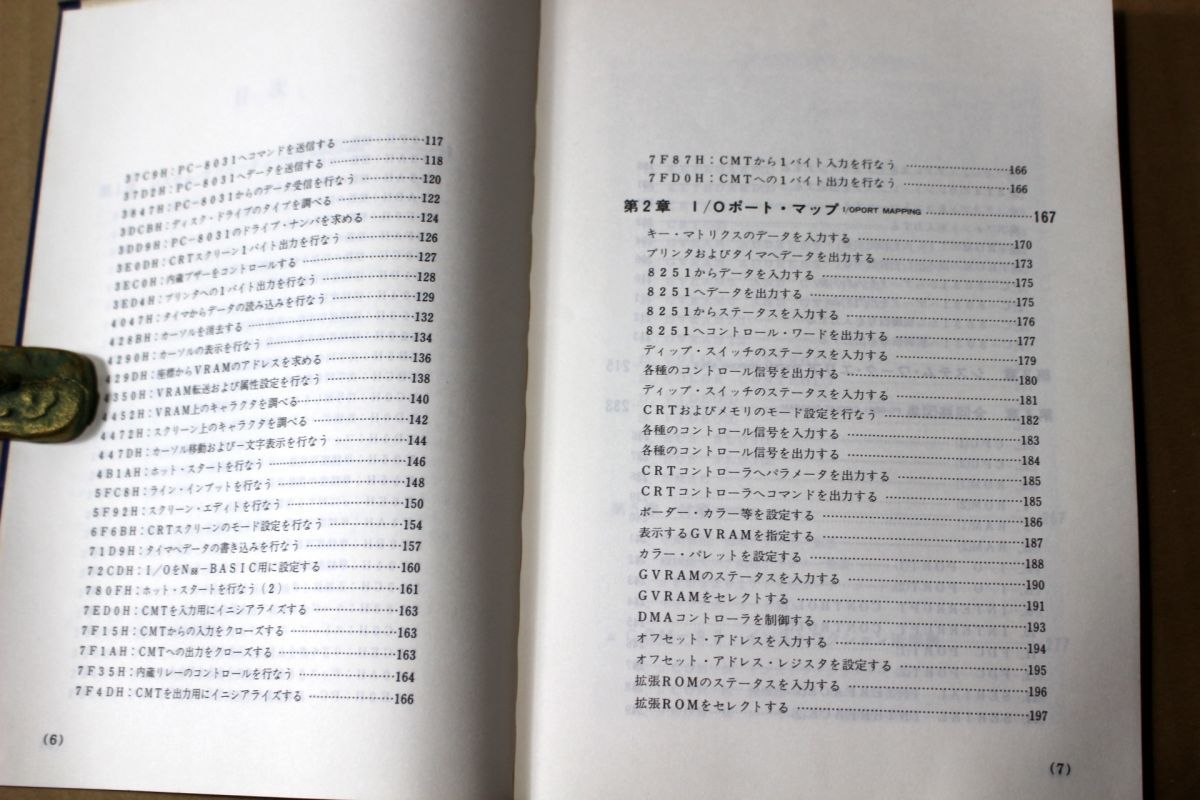 37C9H：PC-8031へコマンドを送信する……117
37D2H：PC-8031へデータを送信する……118
3847H：PC-8031からのデータ受信を行なう……120
3DCBH：ディスク・ドライブのタイプを調べる……122
3DD9H：PC-8031のドライブ・ナンバを求める……124
3E0DH：CRTスクリーン1バイト出力を行なう……126
3EC0H：内蔵ブザーをコントロールする……127
3ED4H：プリンタへの1バイト出力を行なう……128
4047H：タイマからデータの読み込みを行なう……129
428BH：カーソルを消去する……132
4290H：カーソルの表示を行なう……134
429DH：座標からVRAMのアドレスを求める……136
4350H：VRAM転送および属性設定を行なう……138
4452H：VRAM上のキャラクタを調べる……140
4472H：スクリーン上のキャラクタを調べる……142
447DH：カーソル移動および一文字表示を行なう……144
4B1AH：ホット・スタートを行なう……146
5FC8H：ライン・インプットを行なう……148
5F92H：スクリーン・エディトを行なう……150
6F6BH：CRTスクリーンのモード設定を行なう……154
71D9H：タイマへデータの書き込みを行なう……157
72CDH：I/OをN88-BASIC用に設定する……160
780FH：ホット・スタートを行なう（2）……161
7ED0H：CMTを入力用にイニシアライズする……163
7F15H：CMTからの入力をクローズする……163
7F1AH：CMTへの出力をクローズする……163
7F35H：内蔵リレーのコントロールを行なう……164
7F4DH：CMTを出力用にイニシアライズする……166
(6)
7F87H：CMTから1バイト入力を行なう……166
7FD0H：CMTへの1バイト出力を行なう……166
第2章 I/Oポート・マップ I/OPORT MAPPING……167
キー・マトリクスのデータを入力する……170
プリンタおよびタイマへデータを出力する……173
8251からデータを入力する……175
8251へデータを出力する……175
8251からステータスを入力する……176
8251へコントロール・ワードを出力する……177
ディップ・スイッチのステータスを入力する……179
各種のコントロール信号を出力する……180
ディップ・スイッチのステータスを入力する……181
CRTおよびメモリのモード設定を行なう……182
各種のコントロール信号を入力する……183
各種のコントロール信号を出力する……184
CRTコントローラへパラメータを出力する……185
CRTコントローラへコマンドを出力する……185
ボーダー・カラー等を設定する……186
表示するGVRAMを指定する……187
カラー・パレットを設定する……188
GVRAMのステータスを入力する……190
GVRAMをセレクトする……191
DMAコントローラを制御する……193
オフセット・アドレスを入力する……194
オフセット・アドレス・レジスタを設定する……195
拡張ROMのステータスを入力する……196
拡張ROMをセレクトする……197
(7)